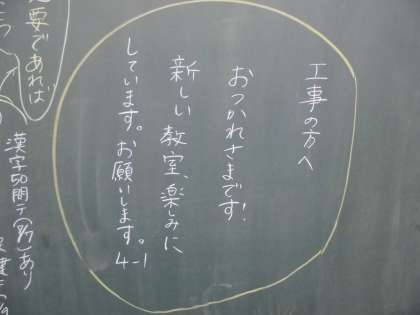 工事の方へ
おつかれさまです!
新しい教室、楽しみに
しています。お願いします。
4-1
要であれば
漢字50問テ(7/9)あり